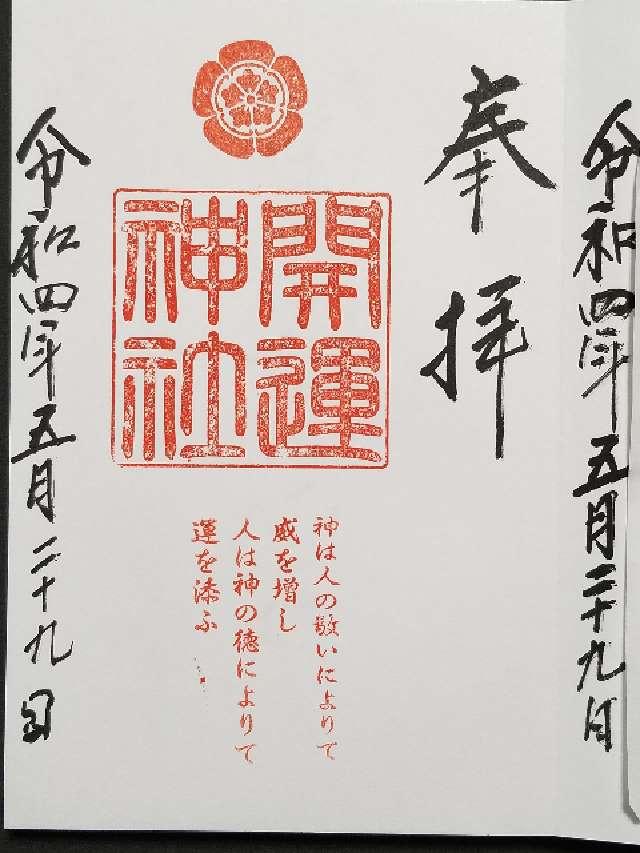 令和四年五月二十九日
奉拝
開運
神社
神は人の敬いによりて
威を増し
人は神の徳によりて
運を添ふ
令和四年五月二十九日